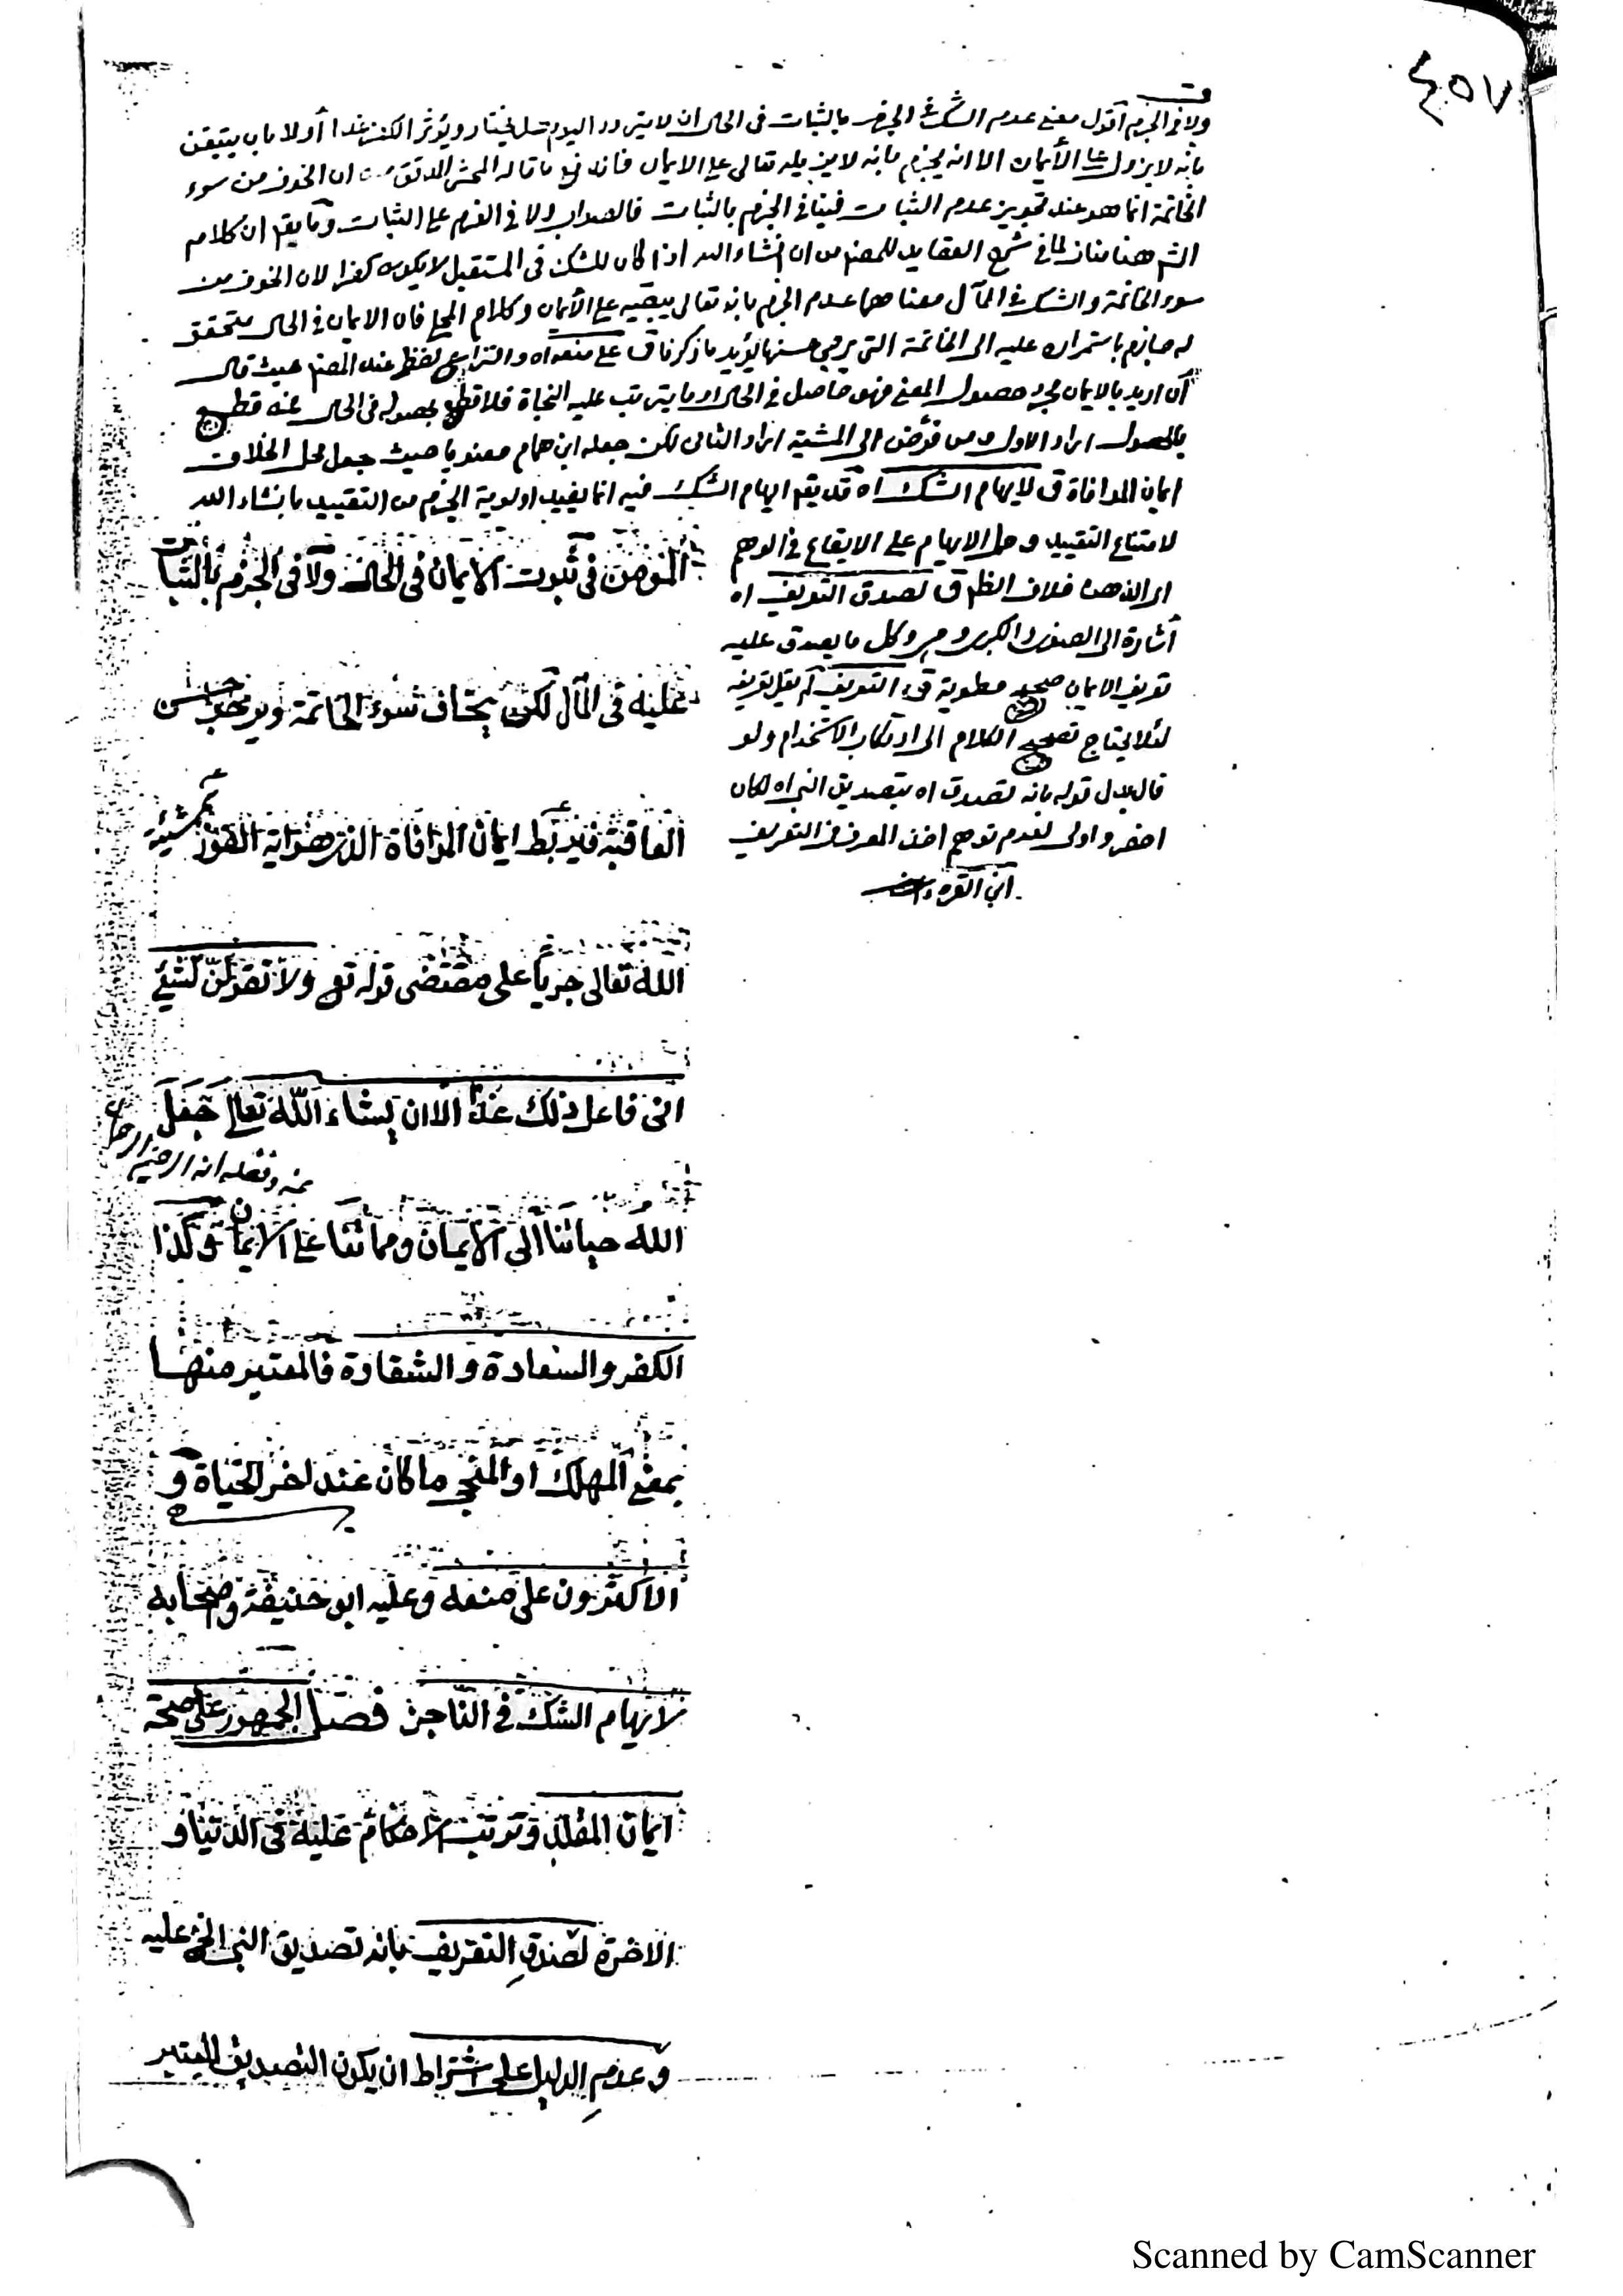 ٤٥٧
ق
ولا في الجزم أقول معنى عدم الشك في الجزم بالثبات في الحال ان لا يتردد اليوم هل يختار ويؤثر الكفر غدا أو لا بان يتيقن
بانه لا يزول عن الأيمان الا انه يجزم بانه لا يزيله تعالى عن الايمان فاندفع ما قاله المحشى المدقق من ان الخوف من سوء
الخاتمة انما هو عند تجويز عدم الثبات فينافي الجزم بالثبات فالصواب ولا في العزم على الثبات وما يقع ان كلام
الش هنا مناف لما في شرح العقايد للمص من ان انشاء الله اذا كان للشك في المستقبل لا يكون كفرا لان الخوف من
سوء الخاتمة والشك في المآل معناهما عدم الجزم بانه تعالى يبقيه على الأيمان وكلام المحلى فان الايمان في الحال متحقق
له جازم باستمراره عليه الى الخاتمة التي يرجى حسنها يؤيد ما ذكرنا ق على منعه اه والنزاع لفظي عند المص حيث قال
أن اريد بالايمان مجرد حصول المعنى فهو حاصل في الحال او ما يترتب عليه النجاة فلا قطع بحصوله في الحال فمن قطع
بالحصول اراد الاول ومن فوض الى المشية اراد الثاني لكن جعله ابن همام معنويا حيث جعل محل الخلاف
ايمان الموافاة ق لايهام الشك اه قد يقع ايهام الشك فيه انما يفيد اولوية الجزم من التقييد بانشاء الله
لامتناع التقييد وحمل الايهام على الايقاع في الوهم
اي الذهن خلاف الظ ق لصدق التعريف اه
أشارة الى الصغرى والكبرى وهي وكل ما يصدق عليه
تعريف الايمان صحيح مطوية ق التعريف لم يقل تعريفه
لئلا يحتاج تصحيح الكلام الى ارتكاب الاستخدام ولو
قال بدل قوله بانه تصديق اه بتصديق النبي اه لكان
اخصر واولى لعدم توهم اخذ المعرف في التعريف
ابن القره داغي
المؤمن في ثبوت الايمان في الحال ولا في الجزم بالثبات
عليه في المآل لكن يخاف سوء الخاتمة ويرجو حسن
العاقبة فيربط ايمان الموافاة الذي هو اية الفوز بمشيئة
الله تعالى جريا على مقتضى قوله تع ولا تقولن لشئ
انى فاعل ذلك غدا الا ان يشاء الله تعالى جعل
بمنه وفضله انه الرحيم الرحمان
الله حياتنا الى الايمان ومماتنا على الايمان وكذا
الكفر والسعادة والشقاوة فالمعتبر منها
بمعنى المهلك او المنجى ما كان عند اخر الحياة و
الاكثرون على منعه وعليه ابو حنيفة وصحابه
لايهام الشك في الناجز فصل الجمهور على صحة
ايمان المقلد وترتب الاحكام عليه في الدنيا و
الاخرة لصدق التعريف بانه تصديق النبي الخ عليه
وعدم الدليل على اشتراط ان يكون التصديق المعتبر
Scanned by CamScanner